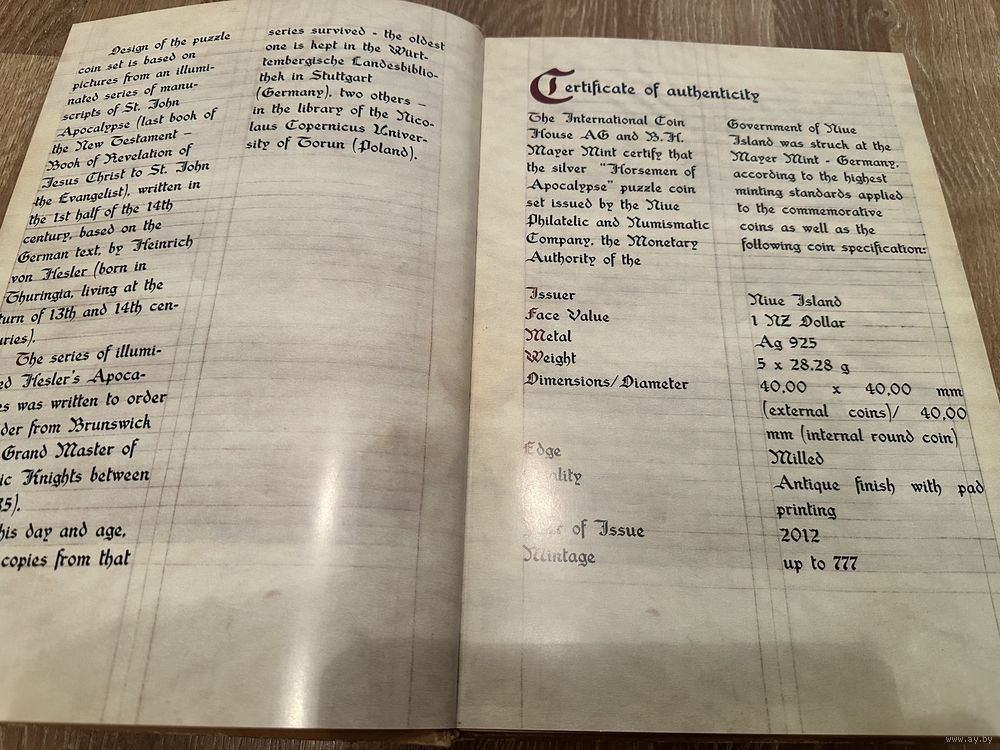 Design of the puzzle
coin set is based on
pictures from an illumi-
nated series of manu-
scripts of St. John
Apocalypse (last book of
the New Testament –
Book of Revelation of
Jesus Christ to St. John
the Evangelist), written in
the 1st half of the 14th
century, based on the
German text, by Heinrich
von Hesler (born in
Thuringia, living at the
turn of 13th and 14th cen-
uries).
The series of illumi-
ed Hesler's Apoca-
es was written to order
der from Brunswick
Grand Master of
ic Knights between
35).
his day and age,
copies from that
series survived - the oldest
one is kept in the Würt-
tembergische Landesbiblio-
thek in Stuttgart
(Germany), two others –
in the library of the Nico-
laus Copernicus Univer-
sity of Torun (Poland).
Certificate of authenticity
The International Coin
House AG and B.H.
Mayer Mint certify that
the silver "Horsemen of
Apocalypse" puzzle coin
set issued by the Niue
Philatelic and Numismatic
Company, the Monetary
Authority of the
Government of Niue
Island was struck at the
Mayer Mint - Germany,
according to the highest
minting standards applied
to the commemorative
coins as well as the
following coin specification:
Issuer Niue Island
Face Value 1 NZ Dollar
Metal Ag 925
Weight 5 x 28.28 g
Dimensions/Diameter 40,00 x 40,00 mm
(external coins)/ 40,00
mm (internal round coin)
Edge Milled
ality Antique finish with pad
printing
of Issue 2012
Mintage up to 777
www.ay.by